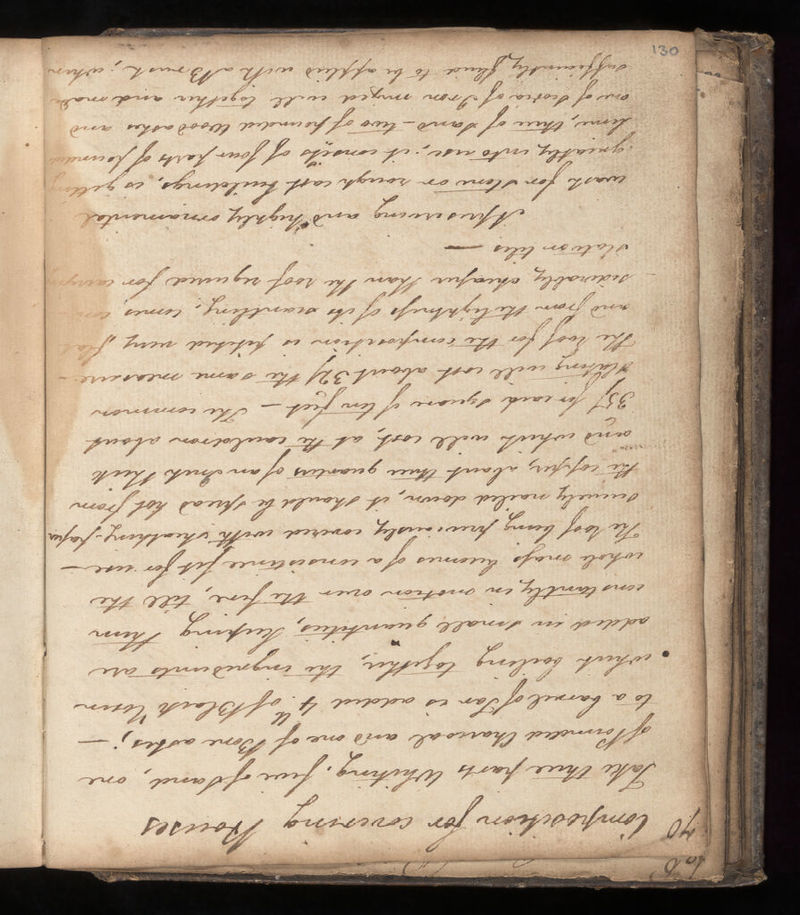 Composition for covering Houses
Take three parts Whiting, five of sand, one
of Pounded Charcoal and one of Bone ashes; —
to a barrel of Tar is added 4 lb of Black Rosin
which boiling together, the ingredients are
added in small quantities, keeping them
constantly in motion over the fire, till the
whole mass becomes of a consistence fit for use —
The roof being previously covered with sheathing-paper
securely nailed down, it should be spread hot from
the copper, about three quarters of an Inch thick
and which will cost, at the cauldron about
35/ for each square of ten feet — The common
Slating will cost about 32/ the same measure —
The roof for the composition is pitched very flat
and from the lightness of its scantling, comes con
siderably cheaper than the roof required for carrying
slate or tiles —
A preserving and highly ornamental
wash for stone or rough cast buildings, is getting
greatly into use; it consists of four parts of pounded
lime, three of sand — two of pounded Wood ashes and
one of Scoria of Iron mixed well together and made
sufficiently fluid to be applied with a Brush, when
130
70